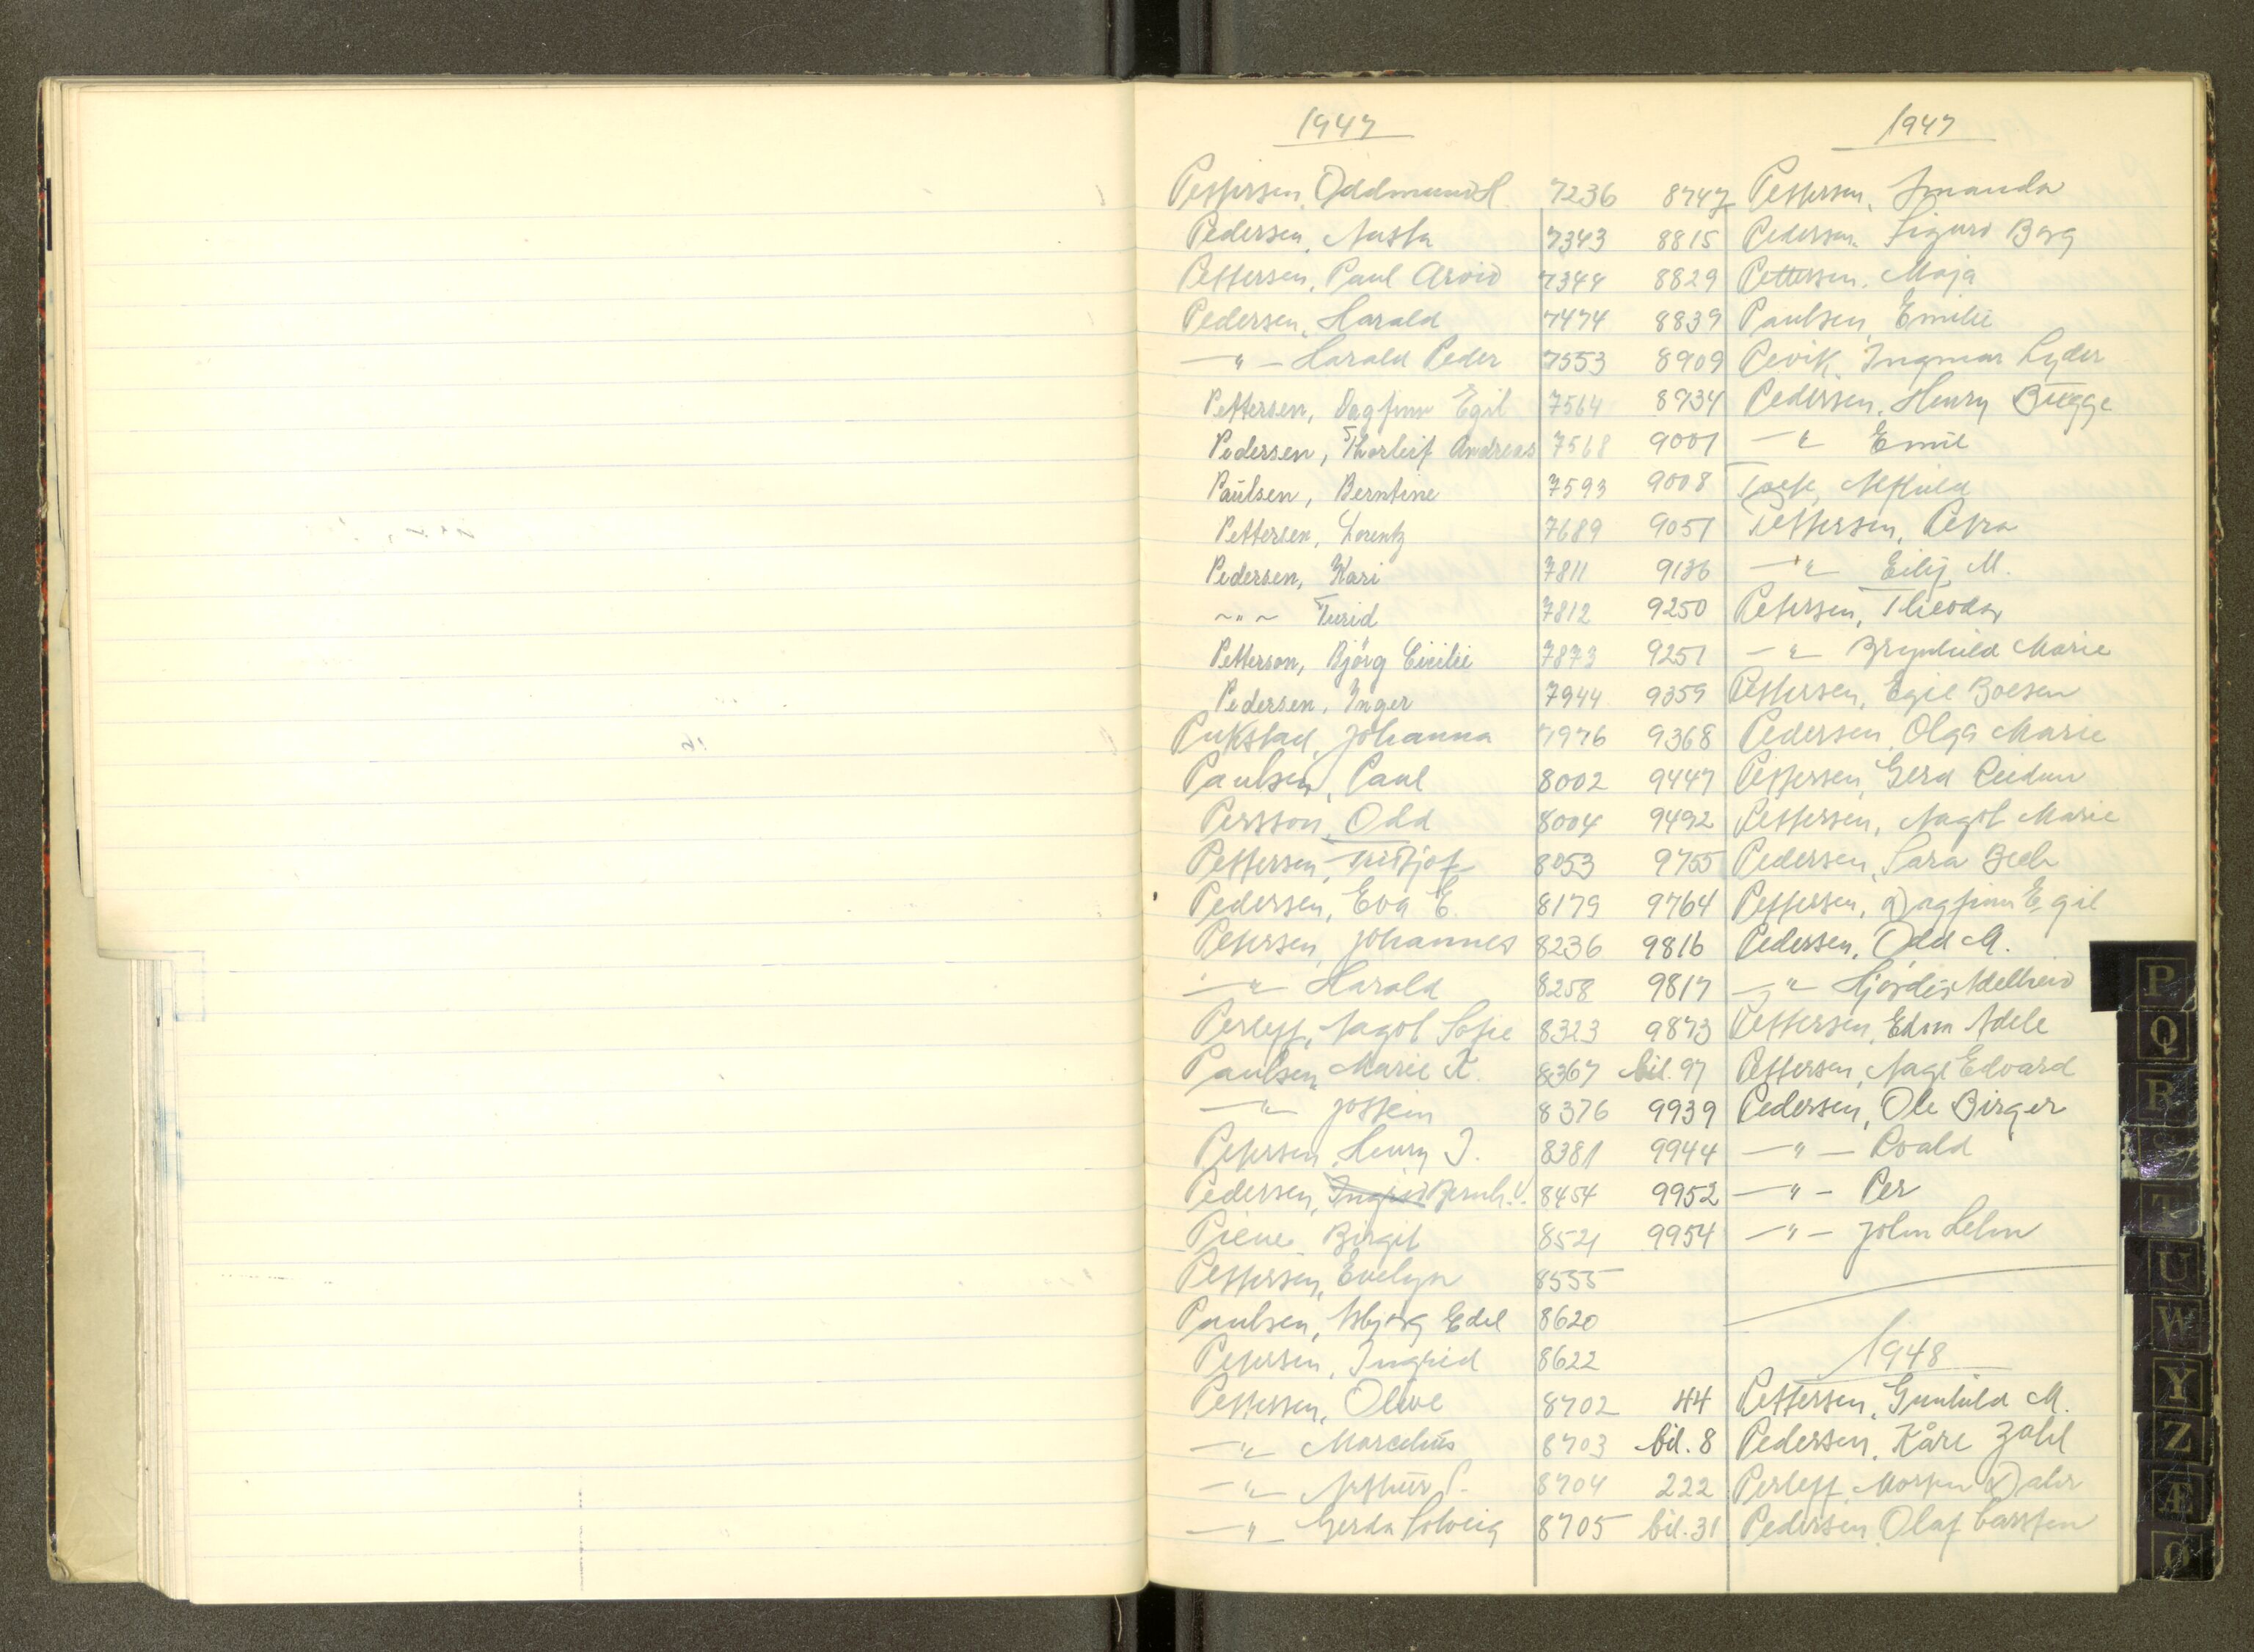 1947
Pettersen, Oddmund H. 7236
Pedersen, Aasta 7343
Pettersen, Paul Arvid 7344
Pedersen, Harald 7474
—"— Harald Peder 7553
Pettersen, Dagfinn Egil 7564
Pedersen, Thorleif Andreas 7568
Paulsen, Berntine 7593
Pettersen, Lorentz 7689
Pedersen, Kari 7811
~"~ Turid 7812
Petterson, Björg Cicilie 7873
Pedersen, Inger 7944
Pukstad, Johanna 7976
Paulsen, Paul 8002
Persson, Odd 8004
Pettersen, Fridtjof 8053
Pedersen, Eva E. 8179
Petersen, Johannes 8236
—"— Harald 8258
Perleff, Aagot Sofie 8323
Paulsen, Marie K. 8367
—"— Jostein 8376
Petersen, Henry J. 8381
Pedersen, Ingrid Bernh. V. 8454
Piene, Birgit 8521
Pettersen, Evelyn 8555
Paulsen, Asbjørg Edel 8620
Petersen, Ingrid 8622
Pettersen, Olive 8702
—"— Marcelius 8703
—"— Arthur P. 8704
—"— Gerda Solveig 8705
1947
8747 Pettersen, Amanda
8815 Pedersen, Sigurd Berg
8829 Pettersen, Maja
8839 Paulsen, Emilie
8909 Pevik, Ingmar Lyder
8934 Pedersen, Henry Bugge
9001 —"— Emil
9008
9051 Pettersen, Petra
9136 —"— Eilif M.
9250 Petersen, Theodor
9251 —"— Brynhild Marie
9359 Pettersen, Egil Boesen
9368 Pedersen, Olga Marie
9447 Pettersen, Gerd Reidun
9492 Pettersen, Aagot Marie
9755 Pedersen, Sara Bech
9764 Pettersen, Dagfinn Egil
9816 Pedersen, Odd M.
9817 —"— Hjørdis Adelheid
9873 Pettersen, Edna Adele
bil. 97 Pettersen, Aage Edvard
9939 Pedersen, Ole Birger
9944 —"— Roald
9952 —"— Per
9954 —"— John Lehn
1948
44 Pettersen, Gunhild M.
bil. 8 Pedersen, Kåre Zahl
222 Perleff, Morten Dahr
bil. 31 Pedersen, Olaf Carsten
P
Q
R
S
T
U
W
Y
Z
Æ
Ø